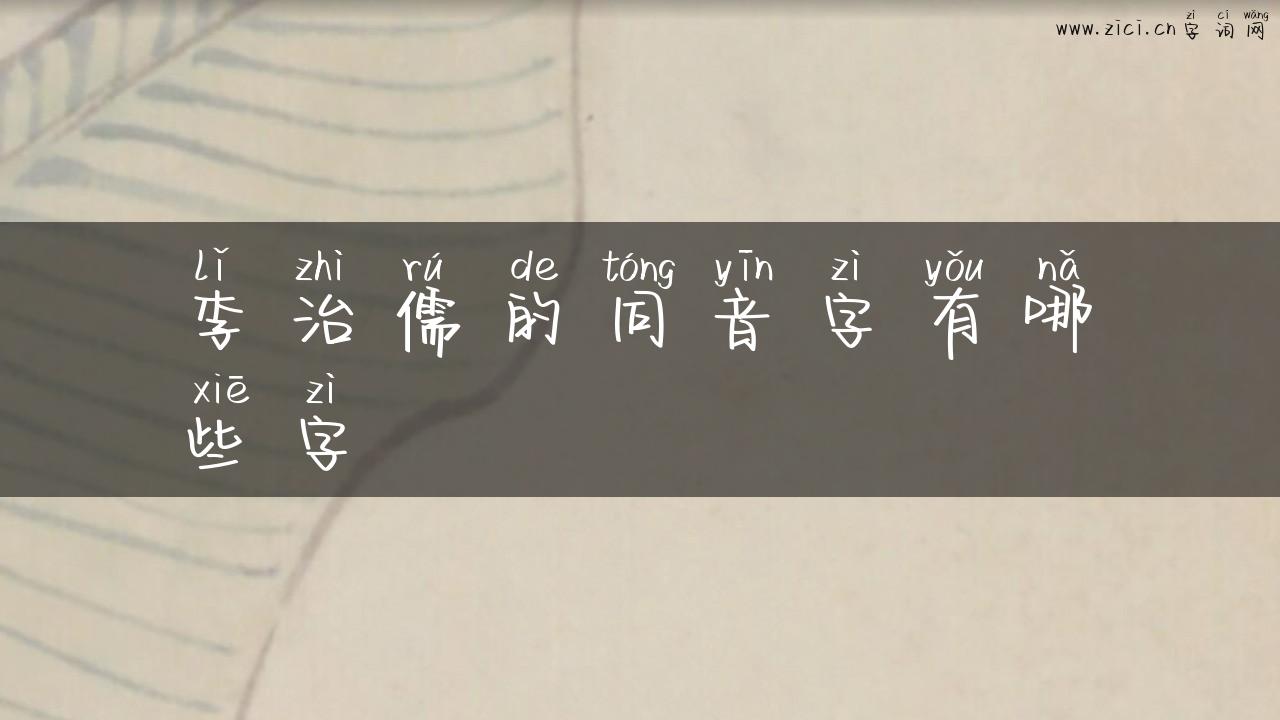 zì cí wǎng
www.zici.cn 字 词 网
lǐ zhì rú de tóng yīn zì yǒu nǎ
李 治 儒 的 同 音 字 有 哪
xiē zì
些 字